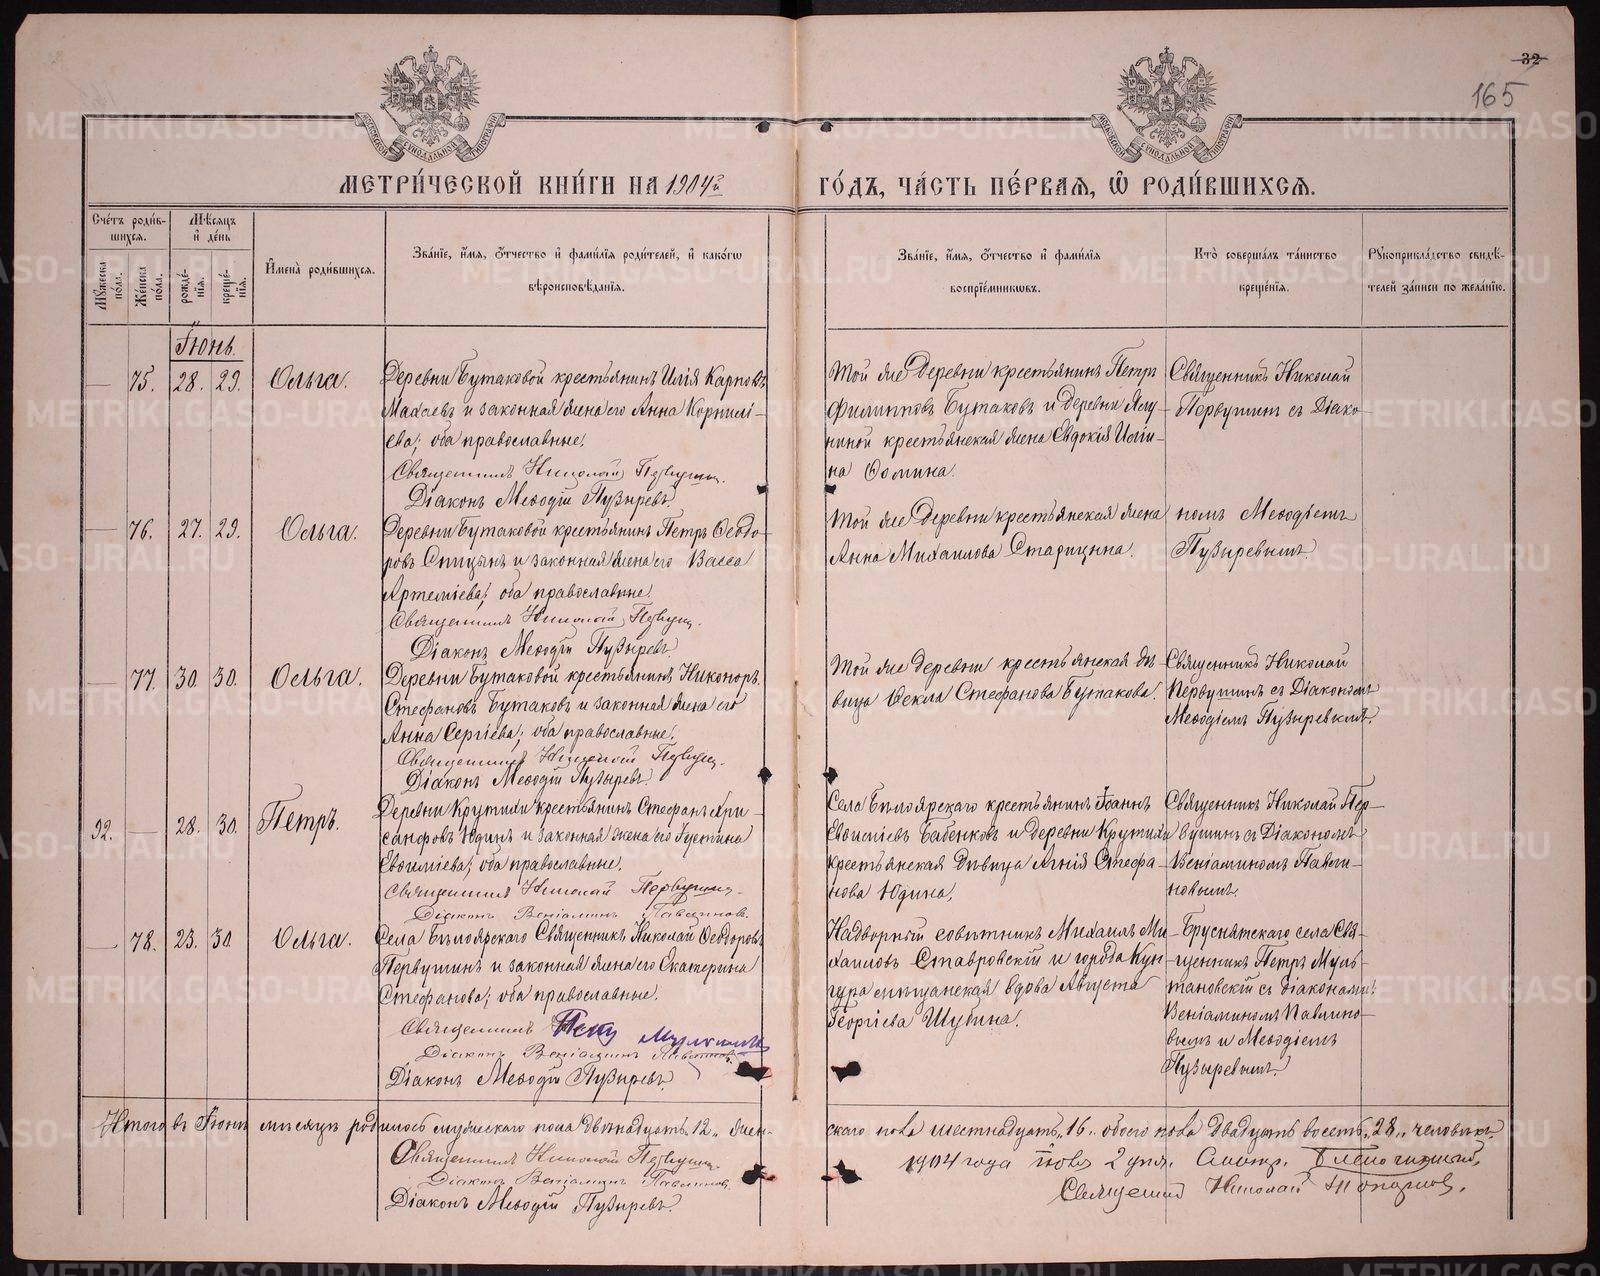 32
165
МОСКОВСКОЙ СУНОДАЛЬНОЙ ТИПОГРАФІИ
МОСКОВСКОЙ СУНОДАЛЬНОЙ ТИПОГРАФІИ
МЕТРИ́ЧЕСКОЙ КНИ́ГИ НА 1904й ГО́ДЪ, ЧА́СТЬ ПЕ́РВАЯ, Ѡ҆ РОДИ́ВШИХСЯ.
Сче́тъ роди́вшихся.
Му́жеска по́ла.
Же́нска по́ла.
Мѣ́сяцъ и҆ де́нь
рожде́нїя.
креще́нїя.
И҆мена̀ роди́вшихся.
Зва́нїе, и҆́мя, ѻ҆́тчество и҆ фами́лїя роди́телей, и҆ како́гѡ вѣроисповѣ́данїя.
Зва́нїе, и҆́мя, ѻ҆́тчество и҆ фами́лїя воспрїе́мникѡвъ.
Кто̀ соверша́лъ та́инство креще́нїя.
Рꙋкоприкла́дство свидѣ́телей за́писи по жела́нїю.
Іюнь.
— 75. 28. 29. Ольга.
Деревни Бутаковой крестьянинъ Илія Карповъ
Махаевъ и законная жена его Анна Корнилі-
ева; оба православные.
Священникъ Николай Первушин.
Діаконъ Меѳодій Пузыревъ.
Той же деревни крестьянинъ Петръ
Филипповъ Бутаковъ и деревни Ялу-
ниной крестьянская жена Евдокія Ильи-
на Ѳомина.
Священникъ Николай
Первушинъ съ Діако-
— 76. 27. 29. Ольга.
Деревни Бутаковой крестьянинъ Петръ Ѳеодо-
ровъ Спицынъ и законная жена его Васса
Артеміева; оба православные.
Священникъ Николай Первуш.
Діаконъ Меѳодій Пузыревъ
Той же деревни крестьянская жена
Анна Михаилова Старицына.
номъ Меѳодіемъ
Пузыревымъ.
— 77. 30. 30. Ольга.
Деревни Бутаковой крестьянинъ Никоноръ
Стефановъ Бутаковъ и законная жена его
Анна Сергіева; оба православные.
Священникъ Николай Первуш.
Діаконъ Меѳодій Пузыревъ.
Той же деревни крестьянская дѣ-
вица Ѳекла Стефанова Бутакова.
Священникъ Николай
Первушинъ съ Діакономъ
Меѳодіемъ Пузыревымъ.
92. — 28. 30. Петръ.
Деревни Крутихи крестьянинъ Стефанъ Хри-
санфовъ Юдинъ и законная жена его Іустина
Евѳиміева; оба православные.
Священникъ Николай Первушин.
Діаконъ Веніаминъ Павлиновъ.
Села Бѣлоярскаго крестьянинъ Іоаннъ
Евѳиміевъ Бабенковъ и деревни Крутихи
крестьянская дѣвица Агнія Стефа-
нова Юдина.
Священникъ Николай Пер-
вушинъ съ Діакономъ
Веніаминомъ Павли-
новымъ.
— 78. 23. 30. Ольга.
Села Бѣлоярскаго Священникъ Николай Ѳеодоровъ
Первушинъ и законная жена его Екатерина
Стефанова; оба православные.
Священникъ Петр
Діаконъ Веніаминъ Павлиновъ.
Діаконъ Меѳодій Пузыревъ.
Надворный совѣтникъ Михаилъ Ми-
хаиловъ Ставровскій и города Кун-
гура мѣщанская вдова Августа
Георгіева Шубина.
Бруснятскаго села Свя-
щенникъ Петръ Муль-
тановскій съ діаконами:
Веніаминомъ Павлино-
вымъ и Меѳодіемъ
Пузыревымъ.
Итого въ Іюнѣ мѣсяцѣ родилось мужескаго пола двѣнадцать „12„ жен-
скаго пола шестнадцать „16„ обоего пола двадцать восемь „28„ человѣкъ.
Священникъ Николай Первушин.
Діаконъ Веніаминъ Павлиновъ
Діаконъ Меѳодій Пузыревъ.
1904 года Іюля 2 дня.
Священник Николай
METRIKI.GASO-URAL.RU